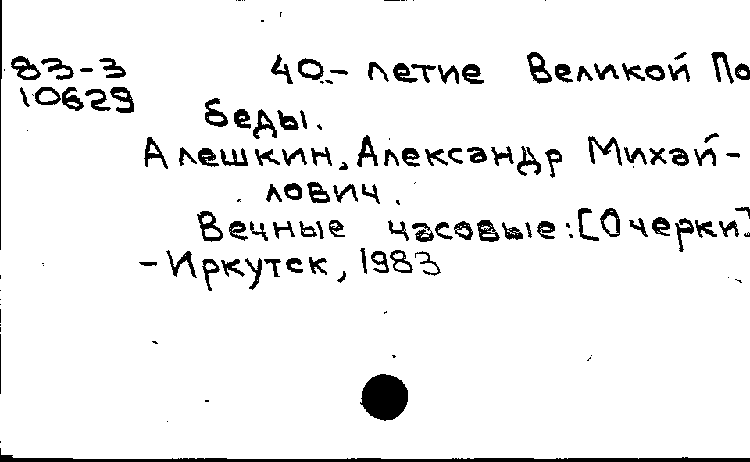 83-3 40-летие Великой По
10629
беды.
Алешкин, Александр Михай-
лович.
Вечные часовые: [Очерки]
- Иркутск, 1983